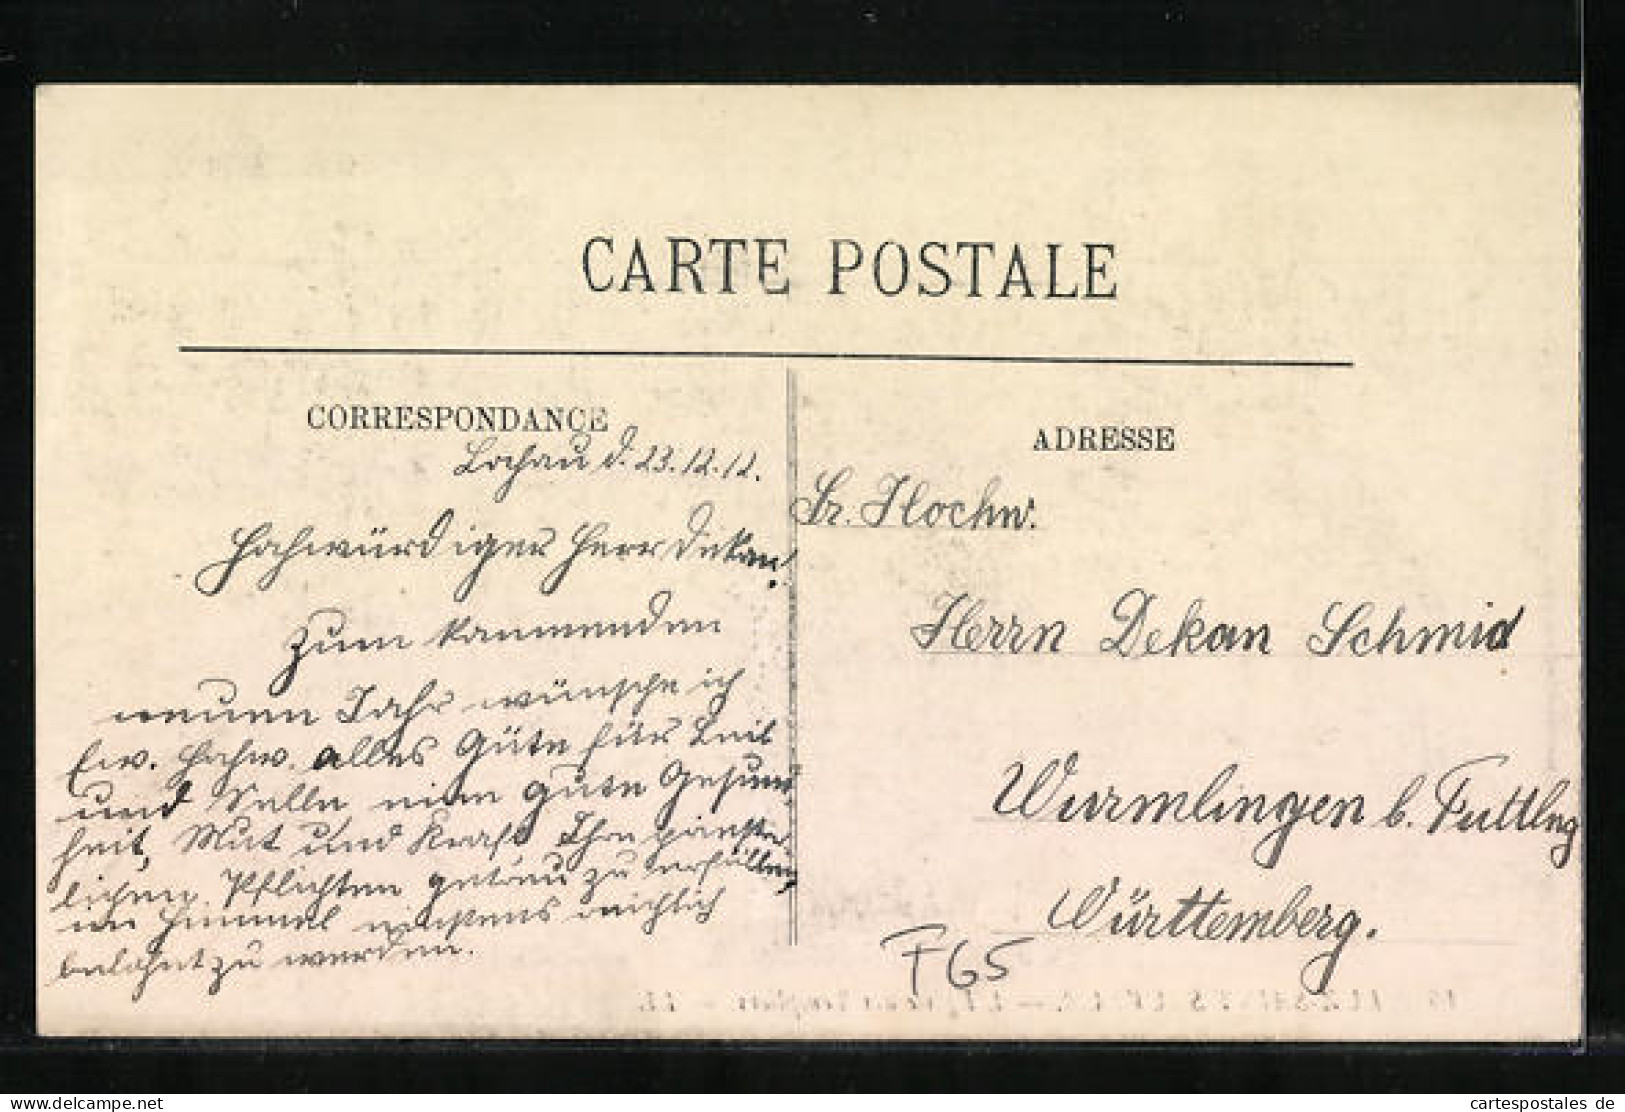 CARTE POSTALE
CORRESPONDANCE
Lochau d. 23.12.12.
Hochwürdiger Herr Dekan!
Zum kommenden
neuen Jahr wünsche ich
Ew. Hochw. alles Gute für Leib
und Seele, eine gute Gesund-
heit, Mut und Kraft Ihre
lichen Pflichten getreu zu erfüllen,
im Himmel einstens reichlich
belohnt zu werden.
ADRESSE
Sr. Hochw.
Herrn Dekan Schmid
Wurmlingen b. Tuttlng
Württemberg.
F65
www.delcampe.net
cartespostales de